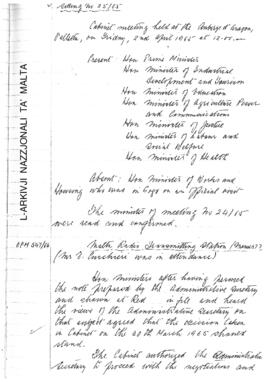 Meeting No 25/65
Cabinet meeting held at the Auberge d'Aragon,
Valletta, on Friday, 2nd April 1965 at
Present Hon Prime Minister
Hon Minister of Industrial
Development and Tourism
Hon Minister of Education
Hon Minister of Agriculture Power
and Communications
Hon Minister of Justice
Hon Minister of Labour and
Social Welfare
Hon Minister of Health
Absent: Hon Minister of Works and
Housing who was in on an official visit
The minutes of meeting No 24/65
were read and confirmed.
Malta Radio Transmitting Station
(Mr was in attendance)
Hon Ministers after having perused
the note prepared by the Administrative Secretary
and shown at Red in file and heard
the views of the Administrative Secretary on
that subject agreed that the decision taken
in Cabinet on the 20th March 1965 should
stand.
The Cabinet authorised the Administrative
Secretary to proceed with the negotiations and
L-ARKIVJI NAZZJONALI TA' MALTA